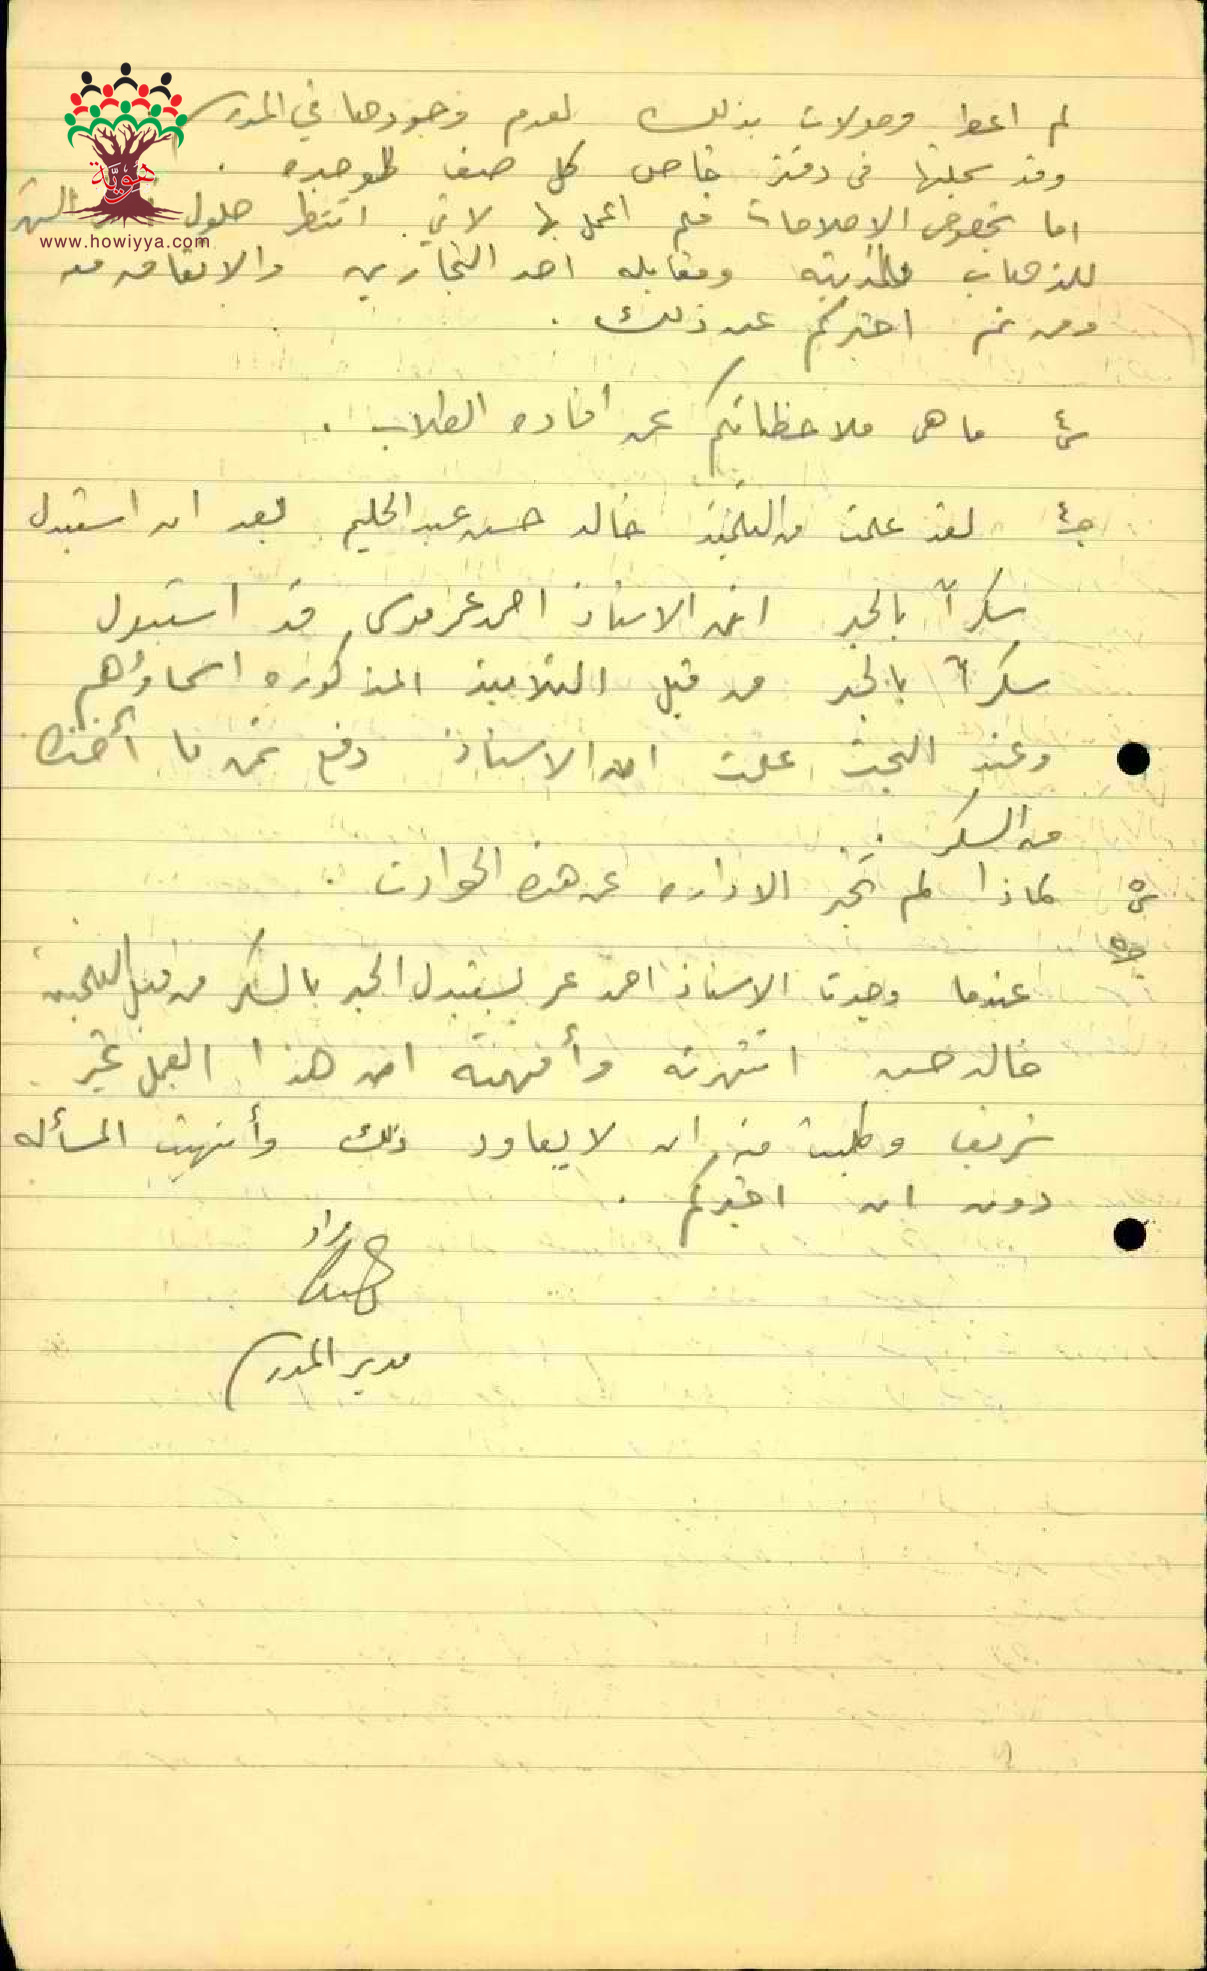 لم اعط وصولات بذلك لعدم وجودها في المدرسة
وقد سجلتها في دفتر خاص كل صف لوحده .
هويّة
اما بخصوص الاصلاحات فلم اعمل بها لاني انتظر حلول الشهر
www.howiyya.com
للذهاب للمدينه ومقابله احد النجارين والاتفاق معه
ومن ثم اخبركم عن ذلك .
س٤ ما هي ملاحظاتكم عن افاده الطلاب .
ج٤ لقد علمت من التلميذ خالد حسن عبد الحليم بعد ان استبدل
سكراً بالحبر ان الاستاذ احمد عمر موسى قد استبدل
سكراً بالحبر من قبل التلاميذ المذكوره اسماؤهم
وعند البحث علمت ان الاستاذ دفع ثمن ما أخذه
من السكر .
س٥ لماذا لم تخبر الاداره عن هذه الحوادث .
ج٥
عندما وجدت الاستاذ احمد عمر يستبدل الحبر بالسكر من قبل التلميذ
خالد حسن انتهرته وأفهمته ان هذا العمل غير
شريف وطلبت منه ان لا يعاود ذلك وأنهيت المسأله
دون ان اخبركم .
مدير المدرسة